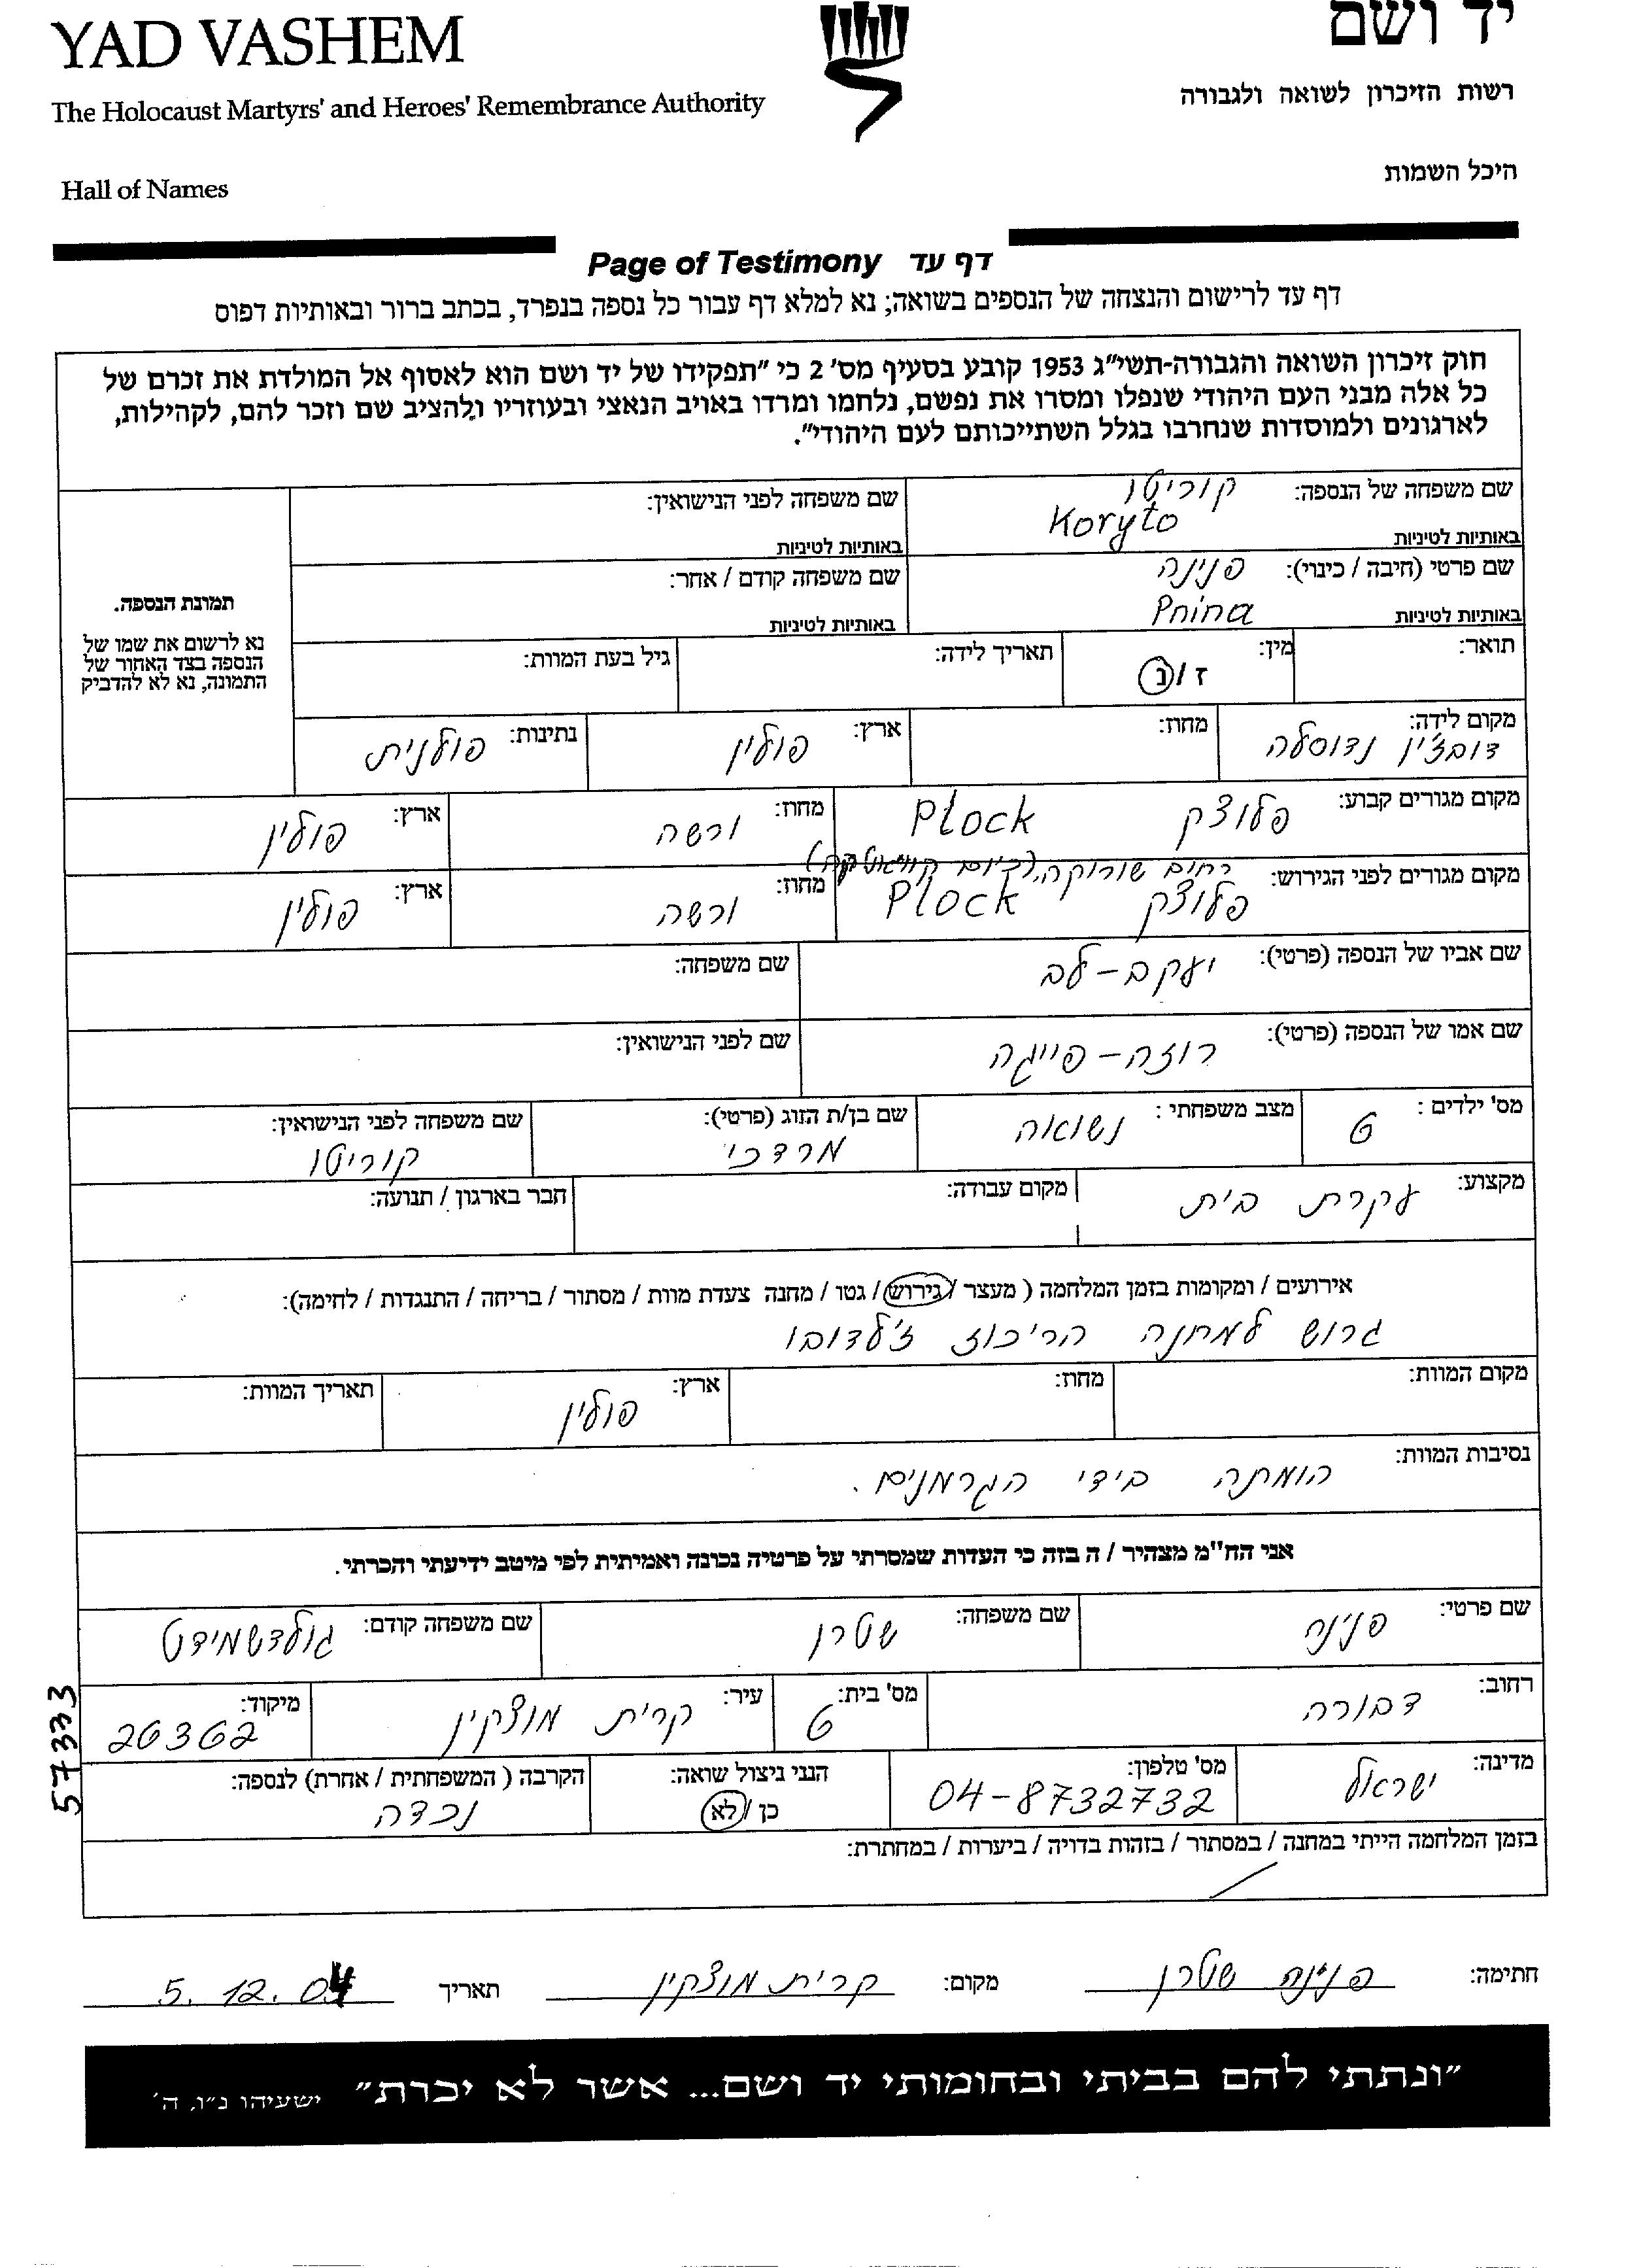 YAD VASHEM
יד ושם
The Holocaust Martyrs' and Heroes' Remembrance Authority
רשות הזיכרון לשואה ולגבורה
Hall of Names
היכל השמות
Page of Testimony דף עד
דף עד לרישום והנצחה של הנספים בשואה; נא למלא דף עבור כל נספה בנפרד, בכתב ברור ובאותיות דפוס
חוק זיכרון השואה והגבורה-תשי"ג 1953 קובע בסעיף מס' 2 כי "תפקידו של יד ושם הוא לאסוף אל המולדת את זכרם של
כל אלה מבני העם היהודי שנפלו ומסרו את נפשם, נלחמו ומרדו באויב הנאצי ובעוזריו ולהציב שם וזכר להם, לקהילות,
לארגונים ולמוסדות שנחרבו בגלל השתייכותם לעם היהודי".
שם משפחה של הנספה: קוריטו
שם משפחה לפני הנישואין:
באותיות לטיניות Koryto
באותיות לטיניות
שם פרטי (חיבה / כינוי): פנינה
שם משפחה קודם / אחר:
באותיות לטיניות Pnina
באותיות לטיניות
תמונת הנספה.
נא לרשום את שמו של
הנספה בצד האחור של
התמונה, נא לא להדביק
תואר: מין: ז / נ תאריך לידה: גיל בעת המוות:
מקום לידה: מחוז: ארץ: פולין נתינות: פולנית
דובז'ין נדוסלה
מקום מגורים קבוע: פלוצק Plock מחוז: ורשה ארץ: פולין
רחוב שורוקה, (כיום
מקום מגורים לפני הגירוש: פלוצק Plock מחוז: ורשה ארץ: פולין
שם אביו של הנספה (פרטי): יעקב - לב שם משפחה:
שם אמו של הנספה (פרטי): רוזה - פייגה שם לפני הנישואין:
מס' ילדים: 6 מצב משפחתי: נשואה שם בן/ת הזוג (פרטי): מרדכי שם משפחה לפני הנישואין: קוריטו
מקצוע: עקרת בית מקום עבודה: חבר בארגון / תנועה:
אירועים / ומקומות בזמן המלחמה ( מעצר / גירוש / גטו / מחנה צעדת מוות / מסתור / בריחה / התנגדות / לחימה):
גרוש למחנה הריכוז ז'לדובו
מקום המוות: מחוז: ארץ: פולין תאריך המוות:
נסיבות המוות: הומתה בידי הגרמנים.
אני הח"מ מצהיר / ה בזה כי העדות שמסרתי על פרטיה נכונה ואמיתית לפי מיטב ידיעתי והכרתי.
שם פרטי: פנינה שם משפחה: שטרן שם משפחה קודם: גולדשמידט
רחוב: דבורה מס' בית: 6 עיר: קרית מוצקין מיקוד: 26362
מדינה: ישראל מס' טלפון: 04-8732732 הנני ניצול שואה: כן / לא הקרבה ( המשפחתית / אחרת) לנספה: נכדה
בזמן המלחמה הייתי במחנה / במסתור / בזהות בדויה / ביערות / במחתרת:
57333
חתימה: פנינה שטרן מקום: קרית מוצקין תאריך 5.12.04
"ונתתי להם בביתי ובחומותי יד ושם... אשר לא יכרת" ישעיהו נ"ו, ה'